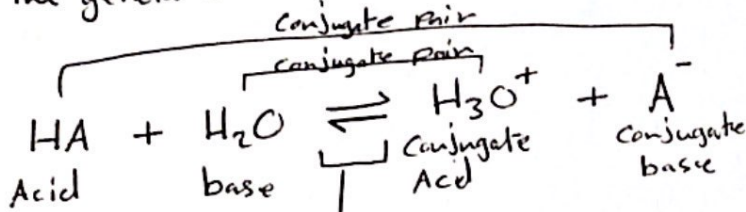 the gener
Conjugate Pair
Conjugate pair
HA + H₂O ⇌ H₃O⁺ + A⁻
Acid base Conjugate Acid Conjugate base